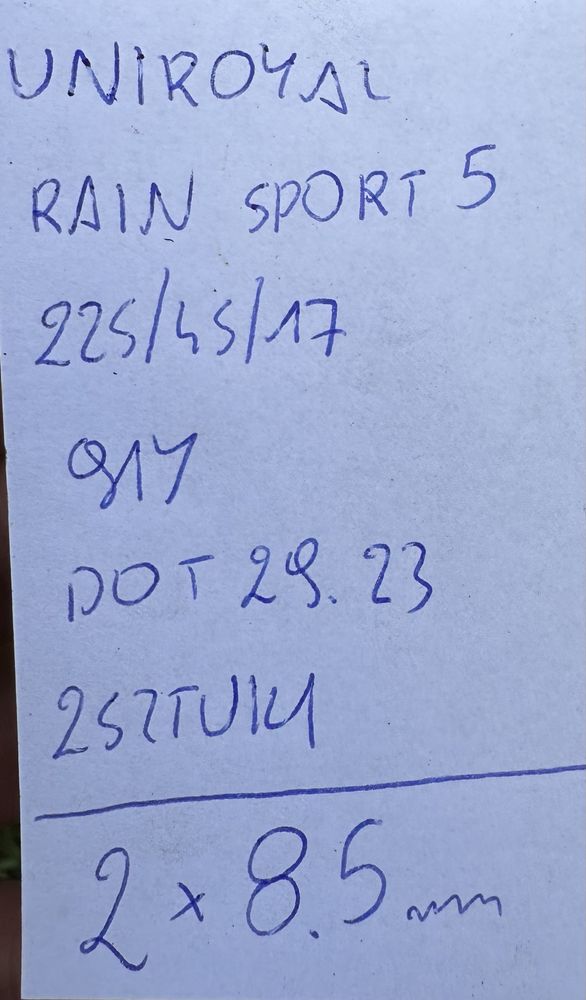 UNIROYAL
RAIN SPORT 5
225/45/17
91Y
DOT 29.23
2SZTUKI
2 x 8.5mm